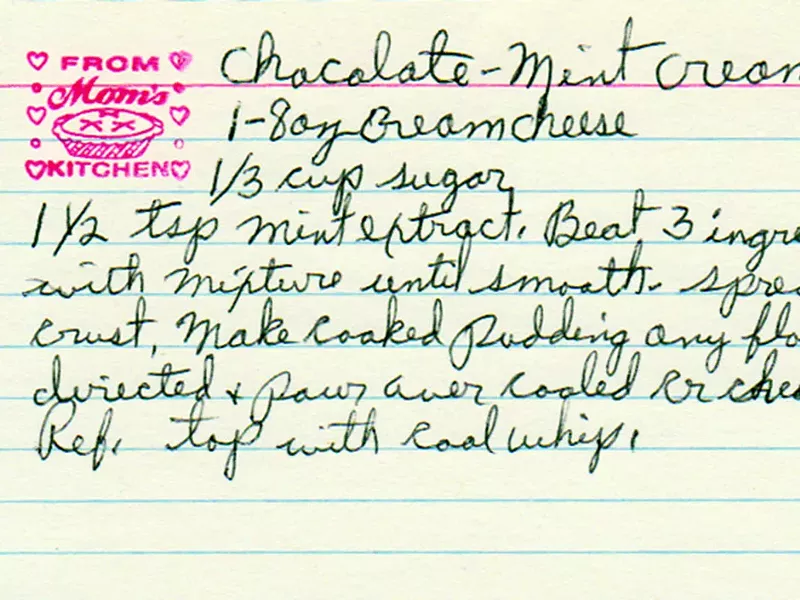 FROM
Mom's
KITCHEN
Chocolate-Mint Cream
1-8oz Creamcheese
1/3 cup sugar
1 1/2 tsp mint extract. Beat 3 ingre
with mixture until smooth. spre
crust, Make cooked pudding any fla
directed & pour over cooled cr che
Ref. top with cool whip.